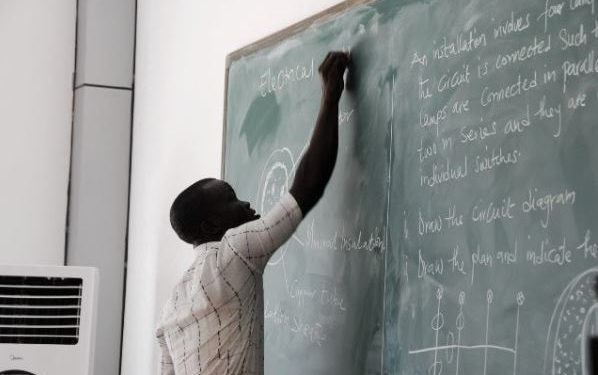 Electrical
Mineral Insulation
Copper Tube
An installation involves four lamps
the Circuit is connected Such
Lamps are Connected in Paralle
two in Series and they are
individual switches.
i Draw the Circuit diagram
i Draw the plan and indicate the